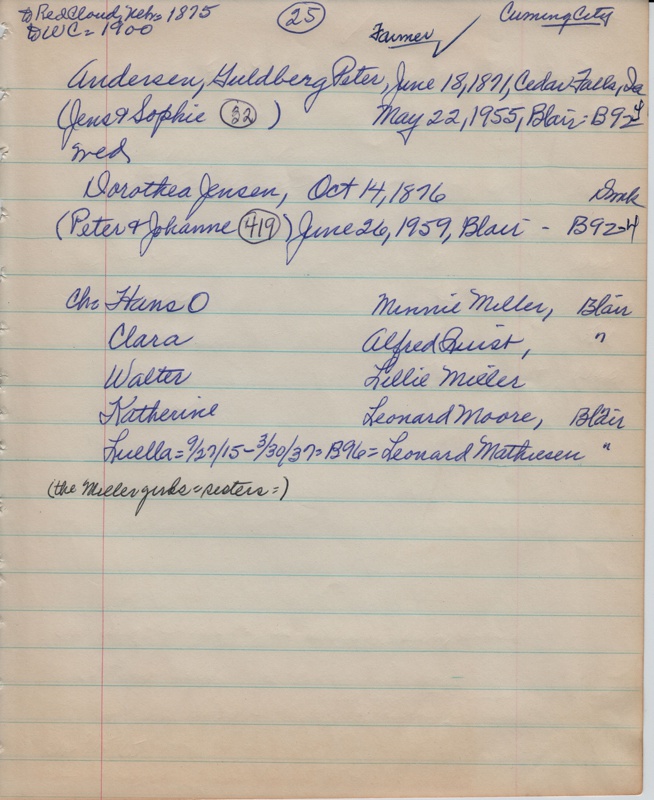 to Red Cloud, Neb = 1875 (25) Cuming City
to WC = 1900 Farmer ✓
Andersen, Guldberg Peter, June 18, 1871, Cedar Falls, Ia
(Jens & Sophie (22) ) May 22, 1955, Blair = B92-4
wed
Dorothea Jensen, Oct 14, 1876 Dmk
(Peter & Johanne (419) ) June 26, 1959, Blair - B92-4
Ch: Hans O Minnie Meller, Blair
Clara Alfred Quist, "
Walter Lillie Meller
Katherine Leonard Moore, Blair
Luella = 9/27/15 - 3/30/37 = B96 = Leonard Mathiesen "
(the Meller girls = sisters =)